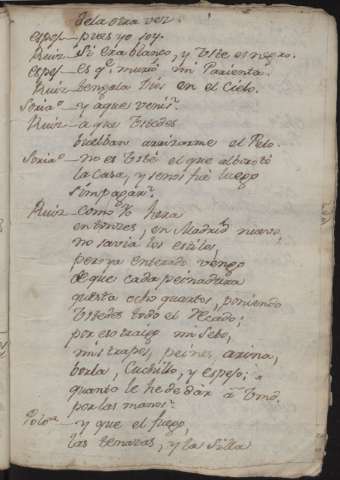 de la otra vez
espes — pues yo soy.
Ruiz — Si era blanco, y Usté es negro.
espes — es q.e murió mi Parienta.
Ruiz — tengala Dios en el Cielo.
Soria.o — y aque venis?
Ruiz — a que Ustedes
buelban arrizarme el Pelo.
Soria.o — no es Usté el que alborotó
la casa, y senos fue luego
sin pagar?
Ruiz — como Yo hera
entonzes, en Madrid nuevo,
no savia los estilos,
pero ya enterado vengo
de que cada peinadura
questa ocho quartos, poniendo
Ustedes todo el recado;
por eso traigo mi Sebo,
mis trapos, peines, arina,
borla, Cuchillo, y espejo;
quanto le he de dàr à Umd.
por las manos?
Polo.a — y que el fuego,
las tenazas, y la Silla